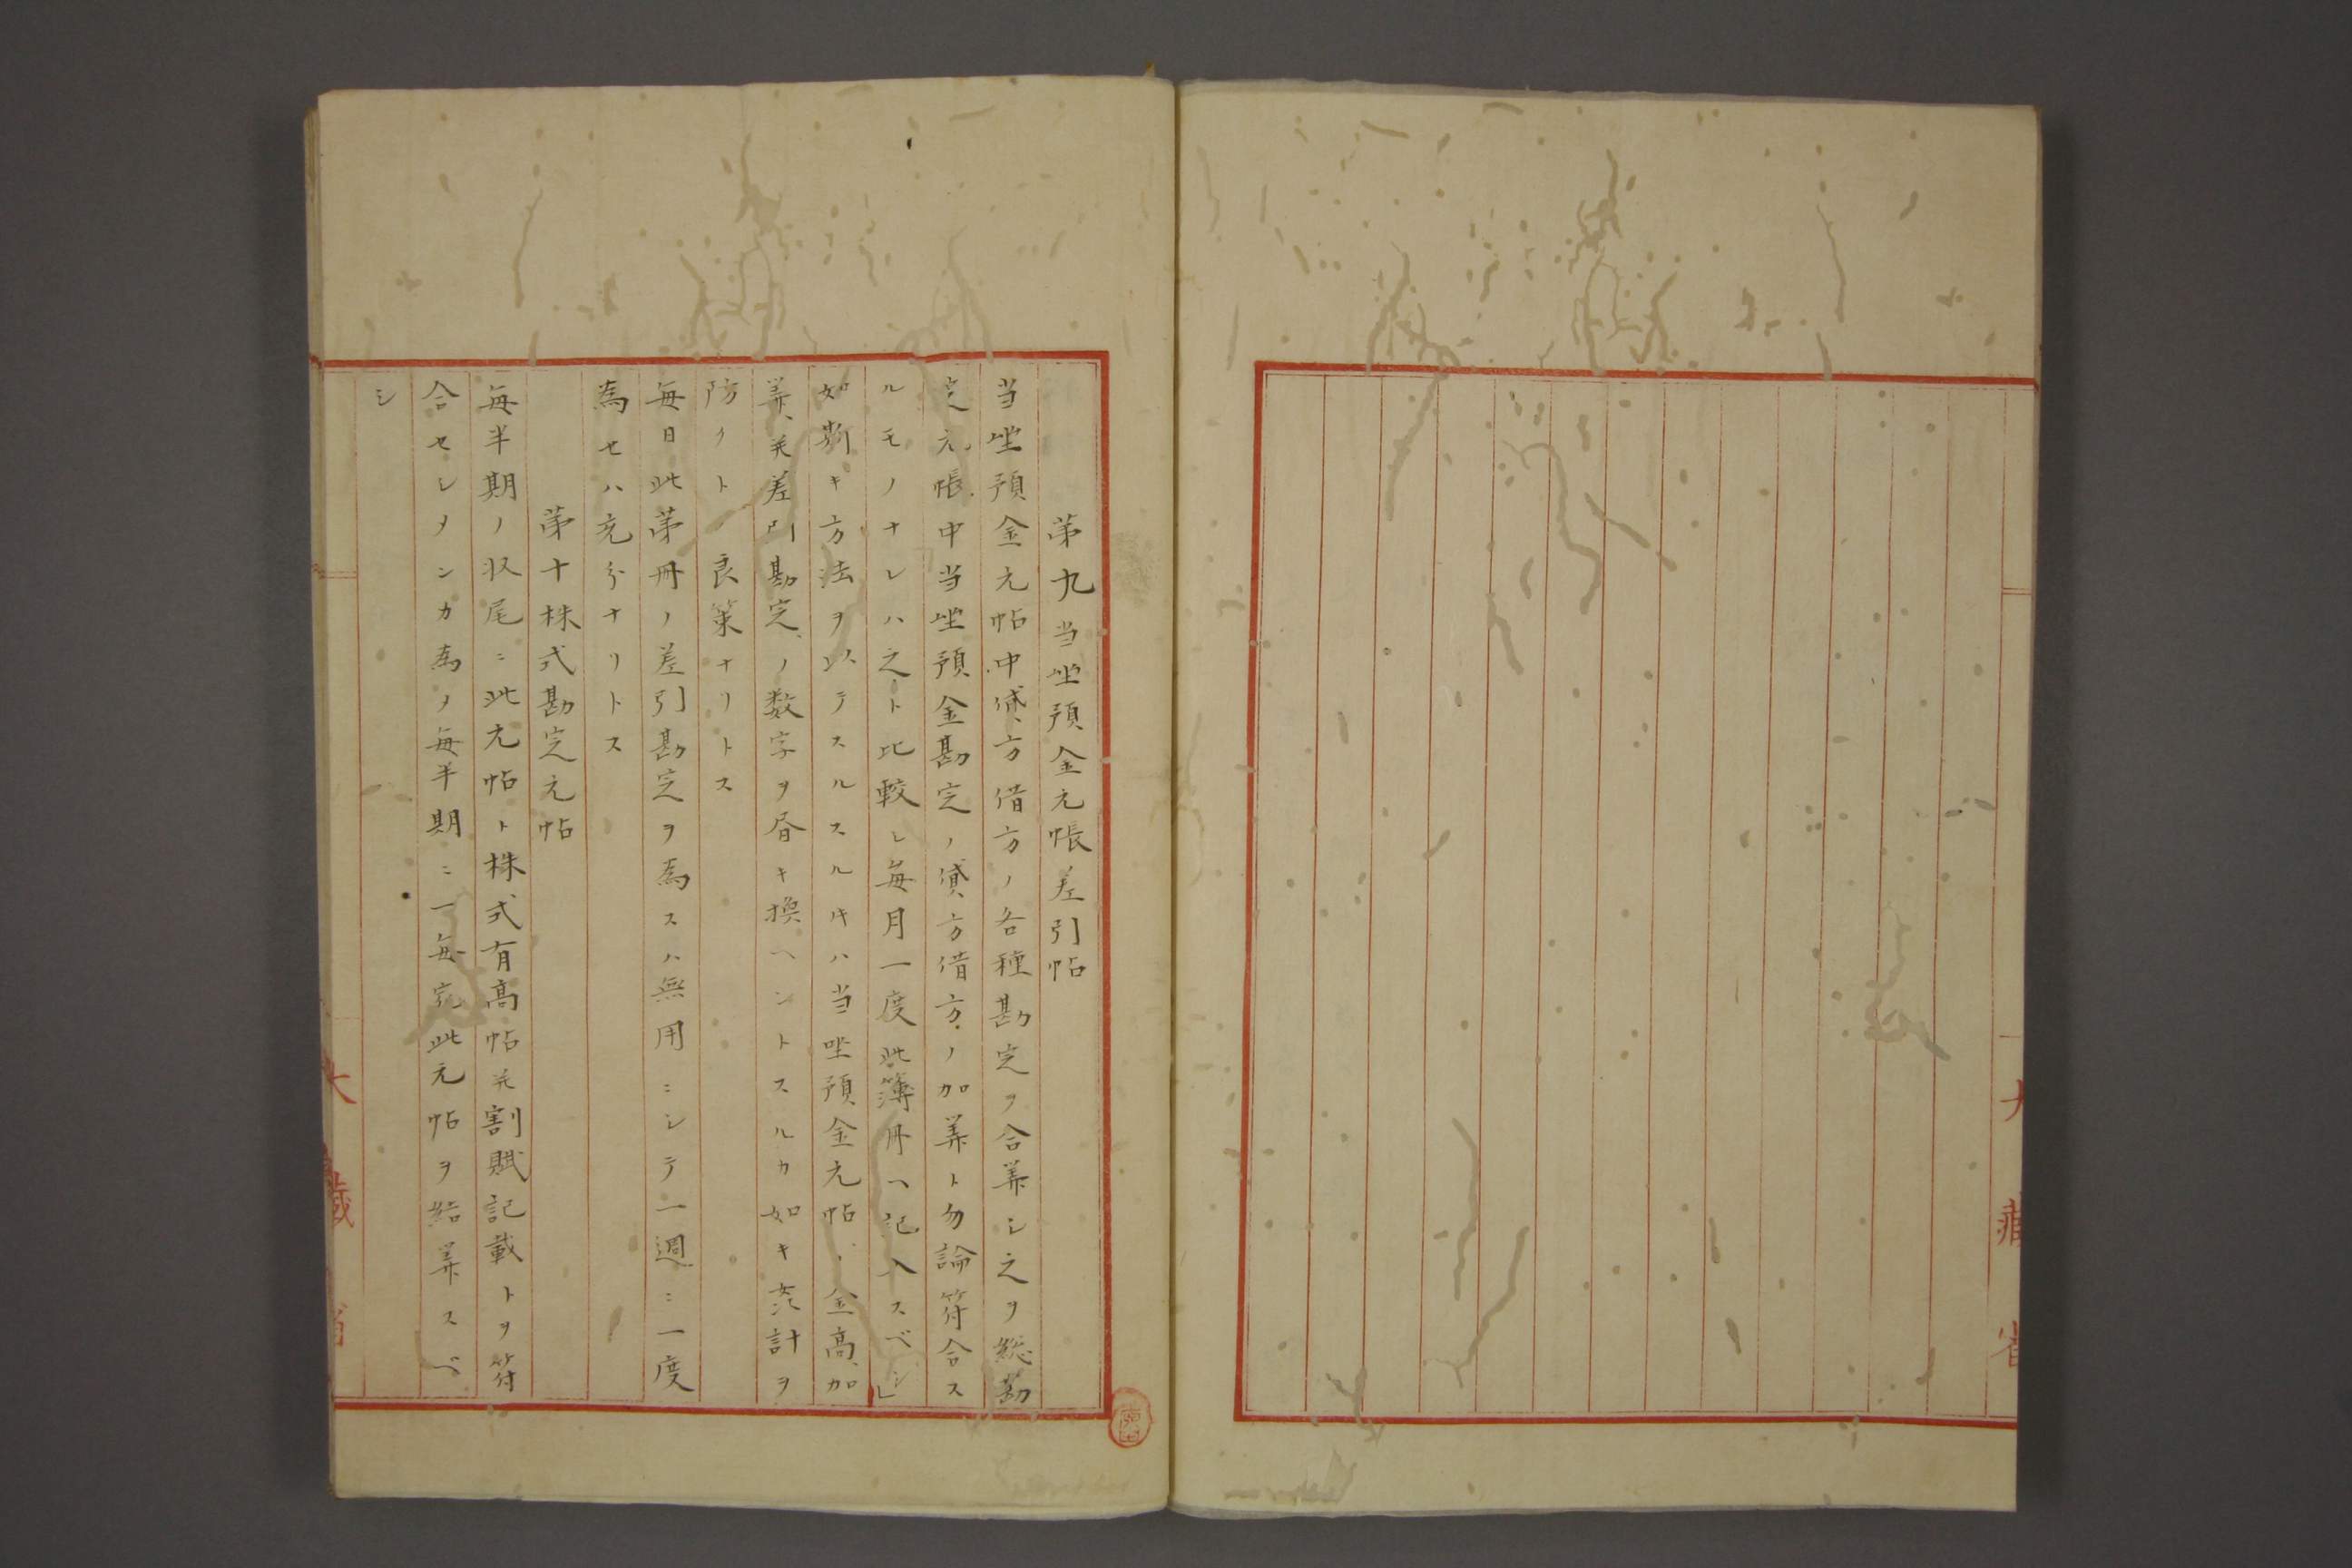 大藏省
第九当坐預金元帳差引帖
当坐預金元帖中貸方借方ノ各種勘定ヲ合算シ之ヲ総勘
定元帳中当坐預金勘定ノ貸方借方ノ加算ト勿論符合ス
ルモノナレハ之ト比較シ毎月一度此簿冊ヘ記入スベシ」
如斯キ方法ヲ以テスルスルキハ当坐預金元帖金高加
算并差引勘定ノ数字ヲ書キ換ヘントスルカ如キ奸計ヲ
防クトノ良策ナリトス
毎日此第冊ノ差引勘定ヲ為スハ無用ニシテ一週ニ一度
為セハ充分ナリトス
第十株式勘定元帖
毎半期ノ収尾ニ此元帖ト株式有高帖并割賦記載トヲ符
合セシメンカ為メ毎半期ニ一毎完此元帖ヲ結算スベ
シ
大藏省